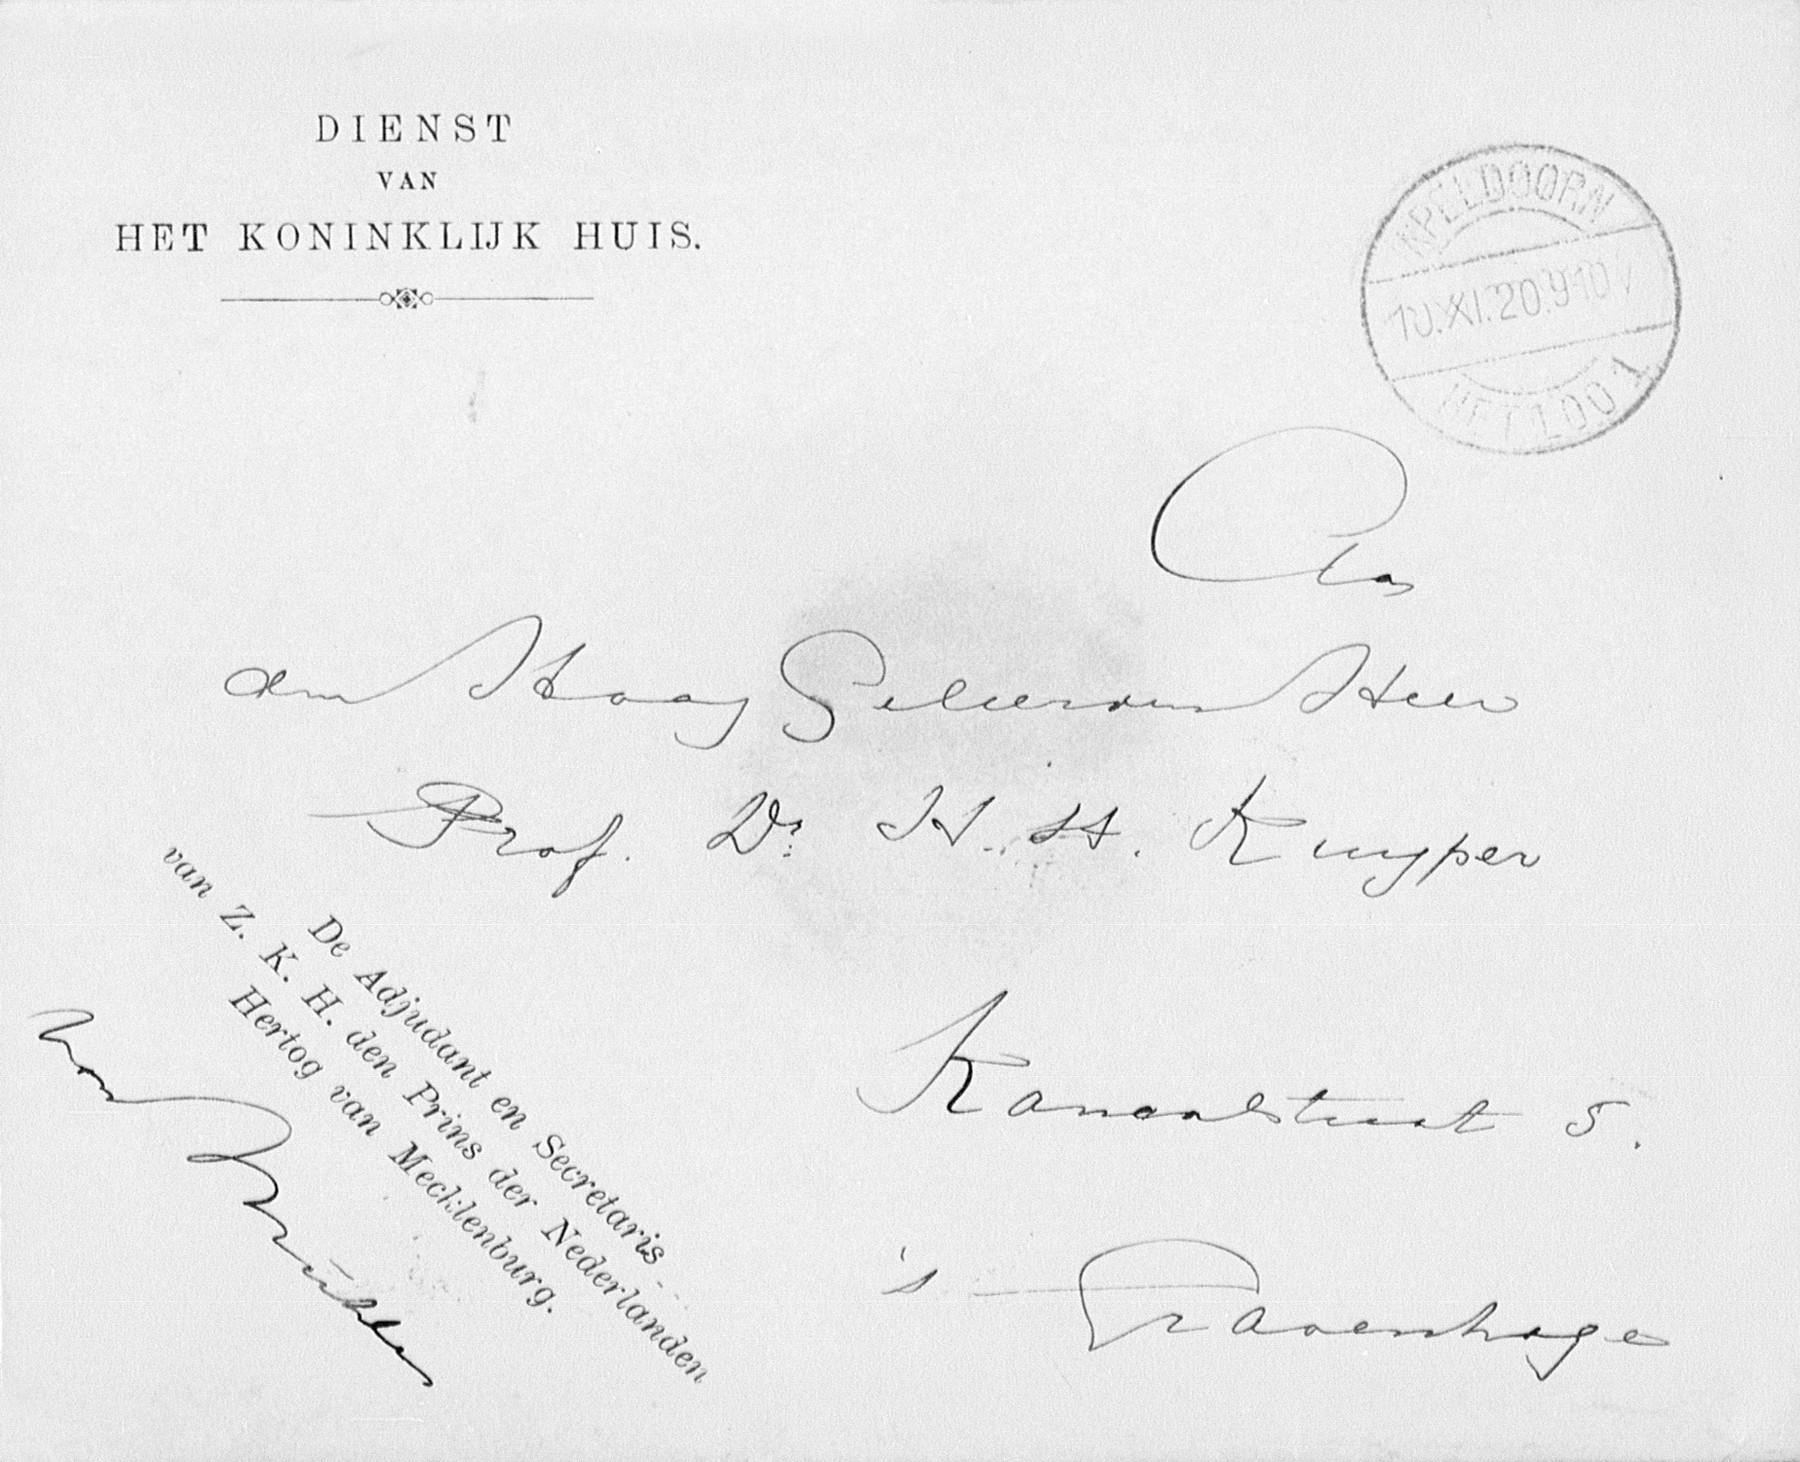 DIENST
VAN
HET KONINKLIJK HUIS.
APELDOORN
10.XI.20.9-10V
HET LOO 1
Aan
den Hoog Geleerden Heer
Prof. Dr. H. H. Kuyper
Kanaalstraat 5.
's Gravenhage
De Adjudant en Secretaris
van Z. K. H. den Prins der Nederlanden
Hertog van Mecklenburg.
von Mühlen